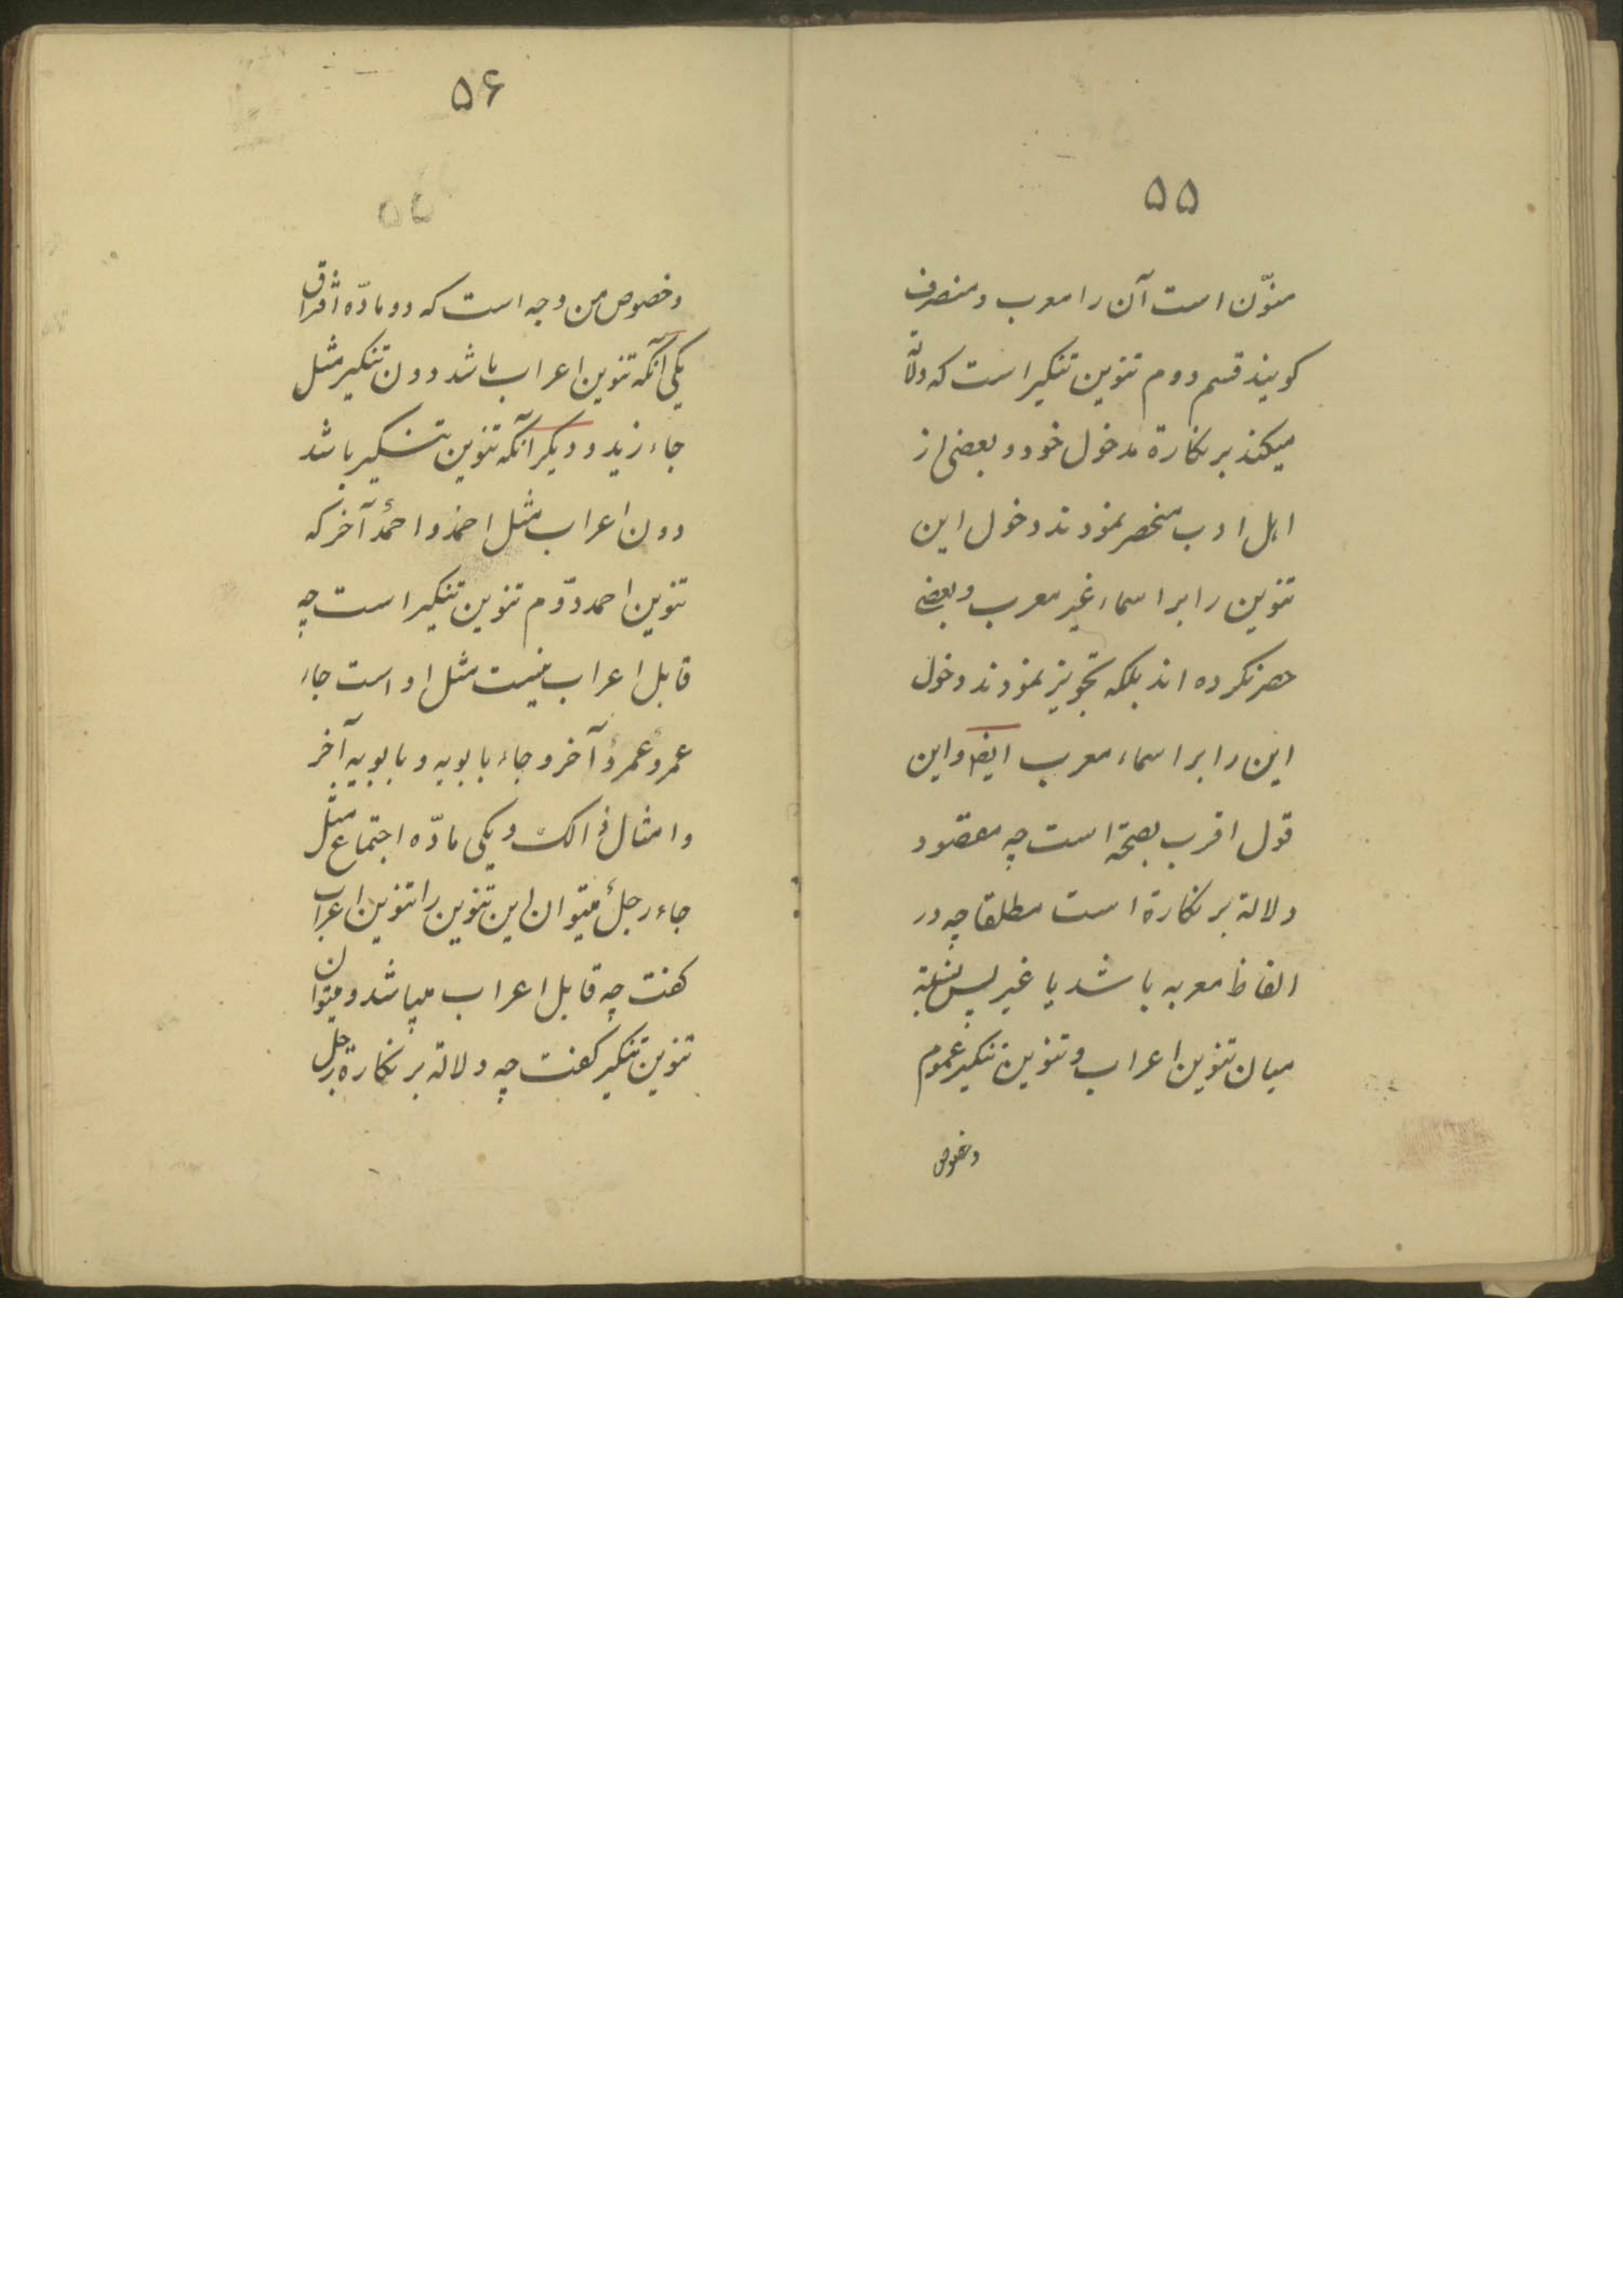 ۵۵
منوّن است آن را معرب و منصرف
کویند قسم دوم تنوین تنکیر است که دلالة
میکند بر نکارة مدخول خود و بعضی از
اهل ادب منحصر نمودند دخول این
تنوین را بر اسماء غیر معرب و بعضی
حصر نکرده اند بلکه تجویز نمودند دخول
این را بر اسماء معرب ایضا و این
قول اقرب بصحة است چه مقصود
دلالة بر نکارة است مطلقا چه در
الفاظ معربه باشد یا غیر پس نسبة
میان تنوین اعراب و تنوین تنکیر عموم
وخصوص
۵۶
وخصوص من وجه است که دو مادّه افتراق
یکی آنکه تنوین اعراب باشد دون تنکیر مثل
جاء زید و دیکر آنکه تنوین تنکیر باشد
دون اعراب مثل احمد و احمدٌ آخر که
تنوین احمد دوّم تنوین تنکیر است چه
قابل اعراب نیست مثل او است جاء
عمرو عمروٌ آخر و جاء بابویه و بابویهٍ آخر
و امثال ذالک و یکی مادّه اجتماع مثل
جاء رجلٌ میتوان این تنوین را تنوین اعراب
کفت چه قابل اعراب میباشد و میتوان
تنوین تنکیر کفت چه دلالة بر نکارة رجل